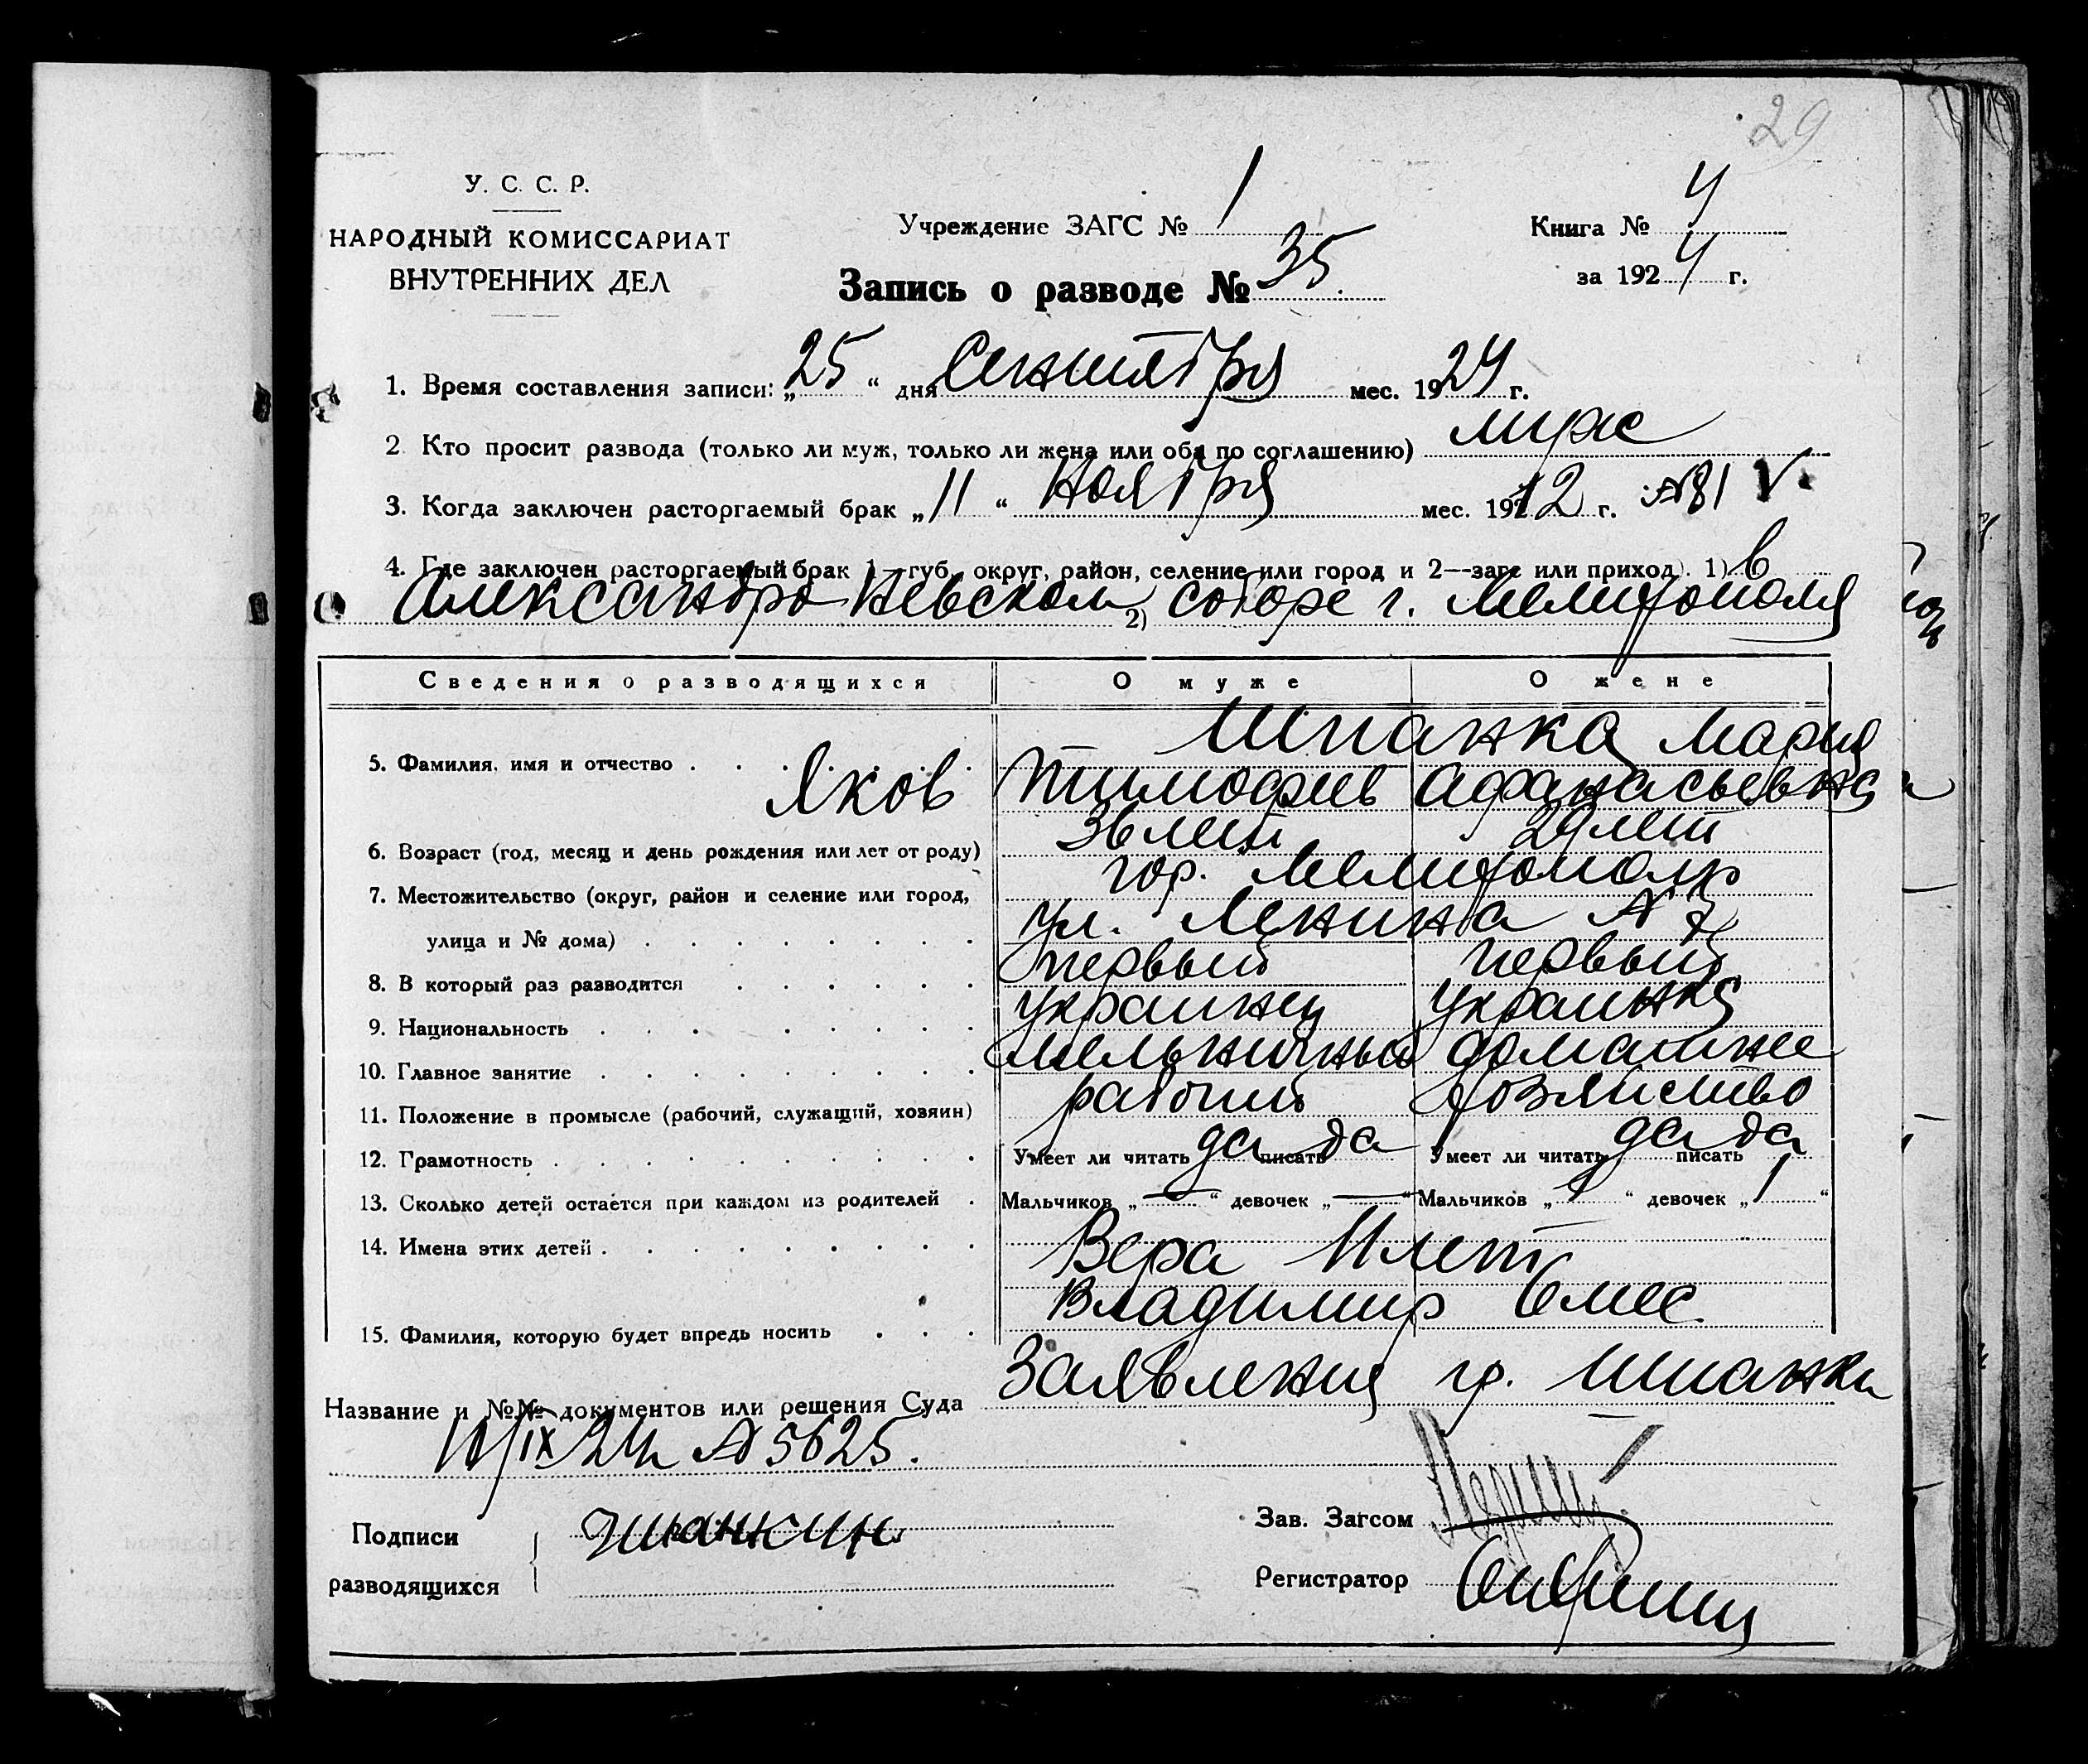 29
У. С. С. Р.
НАРОДНЫЙ КОМИССАРИАТ
ВНУТРЕННИХ ДЕЛ
Учреждение ЗАГС № 1
Запись о разводе № 35.
Книга № 4
за 1924 г.
1. Время составления записи: „25“ дня Сентября мес. 1924 г.
2. Кто просит развода (только ли муж, только ли жена или оба по соглашению) муж
3. Когда заключен расторгаемый брак „11“ Ноября мес. 1912 г. №81 V.
4. Где заключен расторгаемый брак 1—губ., округ, район, селение или город и 2—загс или приход). 1) в
Александро Невском 2) соборе г. Мелитополя
Сведения о разводящихся О муже О жене
Шпанка Мария
5. Фамилия, имя и отчество Яков Тимофеев Афанасьевна
6. Возраст (год, месяц и день рождения или лет от роду) 36 лет 29 лет
7. Местожительство (округ, район и селение или город, гор. Мелитополь
улица и № дома) ул. Ленина №
8. В который раз разводится первый первый
9. Национальность украинец украинка
10. Главное занятие мельничный домашнее
11. Положение в промысле (рабочий, служащий, хозяин) рабочий хозяйство
12. Грамотность Умеет ли читать да писать да Умеет ли читать да писать да
13. Сколько детей остается при каждом из родителей Мальчиков „—“ девочек „—“ Мальчиков „1“ девочек „1“
14. Имена этих детей Вера 11 лет
Владимир 6 мес.
15. Фамилия, которую будет впредь носить
Название и №№ документов или решения Суда Заявления гр. Шпанки
10/IX 24 г № 5625.
Подписи
разводящихся
Зав. Загсом
Регистратор